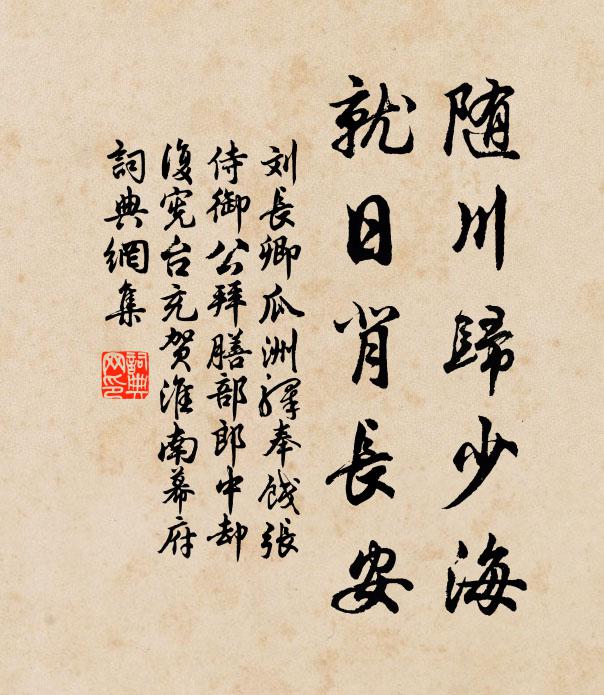 随川歸少海
就日背長安
刘長卿瓜洲驛奉餞張
侍御公拜膳部郎中却
復憲台充賀淮南幕府
詞典網集
詞典网印